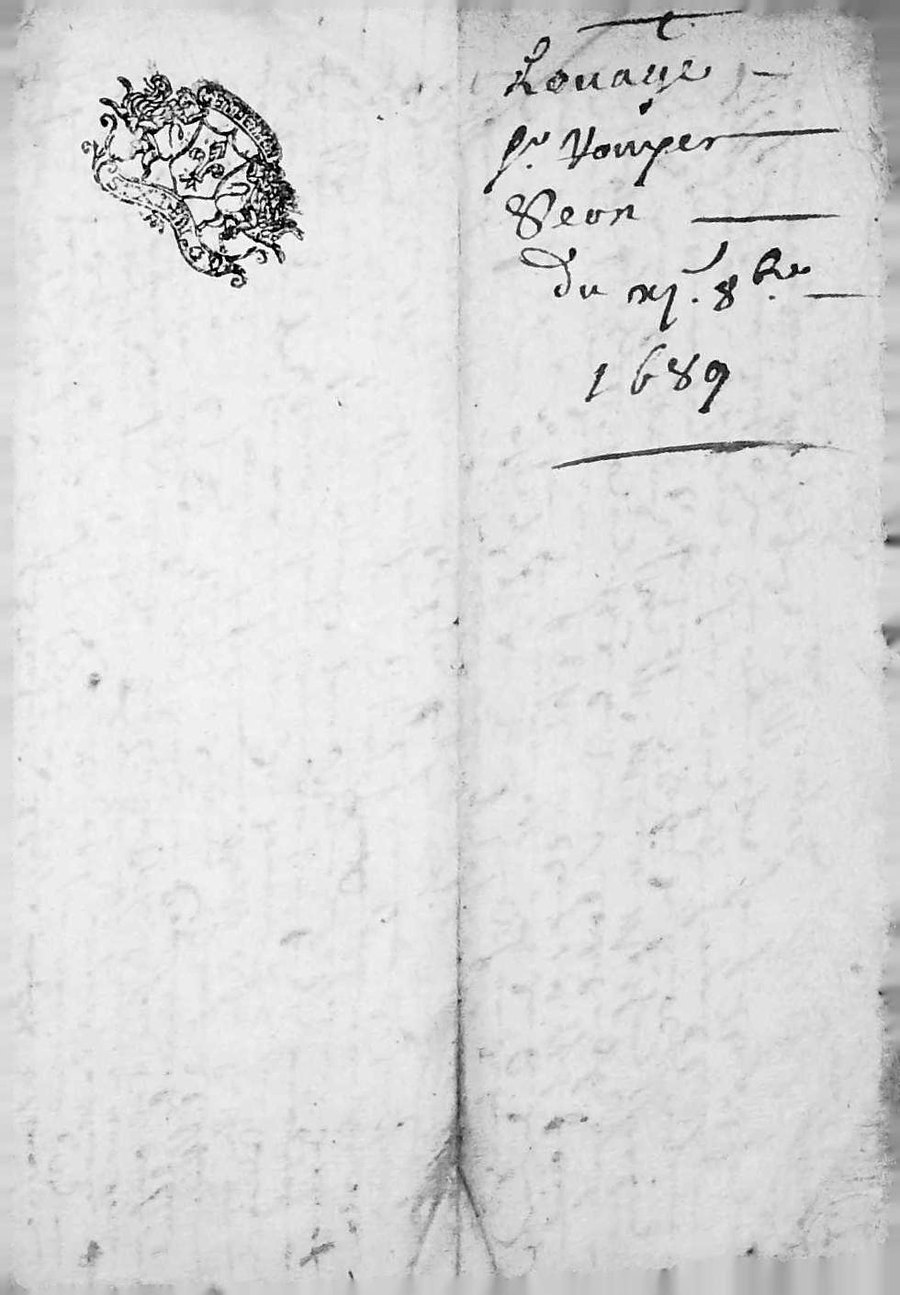 Louage
pr Vouper
Seon
du xj. 8bre
1689